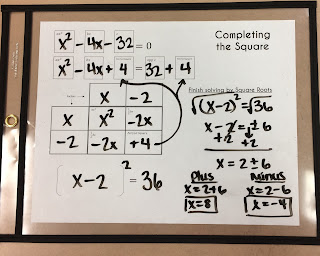 Completing
the Square
x² - 4x - 32 = 0
x² - 4x + 4 = 32 + 4
x -2
x x² -2x
-2 -2x +4
(x-2)² = 36
Finish solving by Square Roots
√(x-2)² = √36
x - 2 = ± 6
+2 +2
x = 2 ± 6
Plus Minus
x = 2+6 x = 2-6
x = 8 x = -4